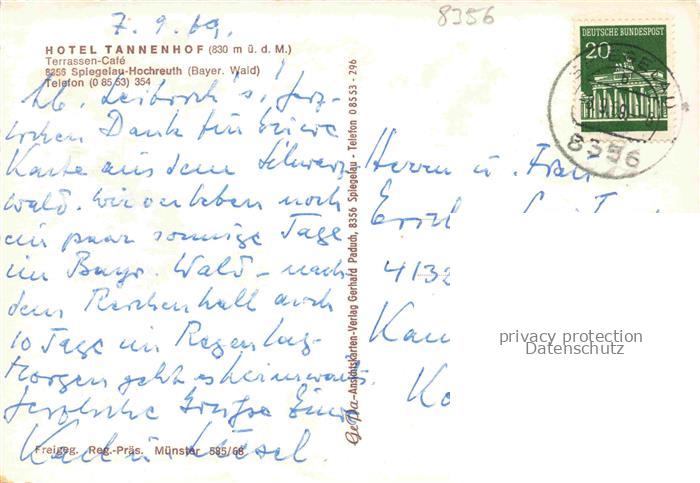 7.9.69.
8356
HOTEL TANNENHOF (830 m ü. d. M.)
Terrassen-Café
8356 Spiegelau-Hochreuth (Bayer. Wald)
Telefon (0 85 53) 354
DEUTSCHE BUNDESPOST
20
8356
Lb. Leibrock's! Herz-
lichen Dank für Eure
Karte aus dem Schwarz-
wald. Wir verleben noch
ein paar sonnige Tage
im Bayr. Wald – nach-
dem Reichenhall auch
10 Tage im Regen lag.
Morgen geht es heimwärts.
Herzliche Grüße Eure
Karl u. Liesel.
Freigeg. Reg.-Präs. Münster 585/68
GePa-Ansichtskarten-Verlag Gerhard Paduch, 8356 Spiegelau - Telefon 0 85 53 - 296
Herrn u. Frau
4132
Kam
privacy protection
Datenschutz